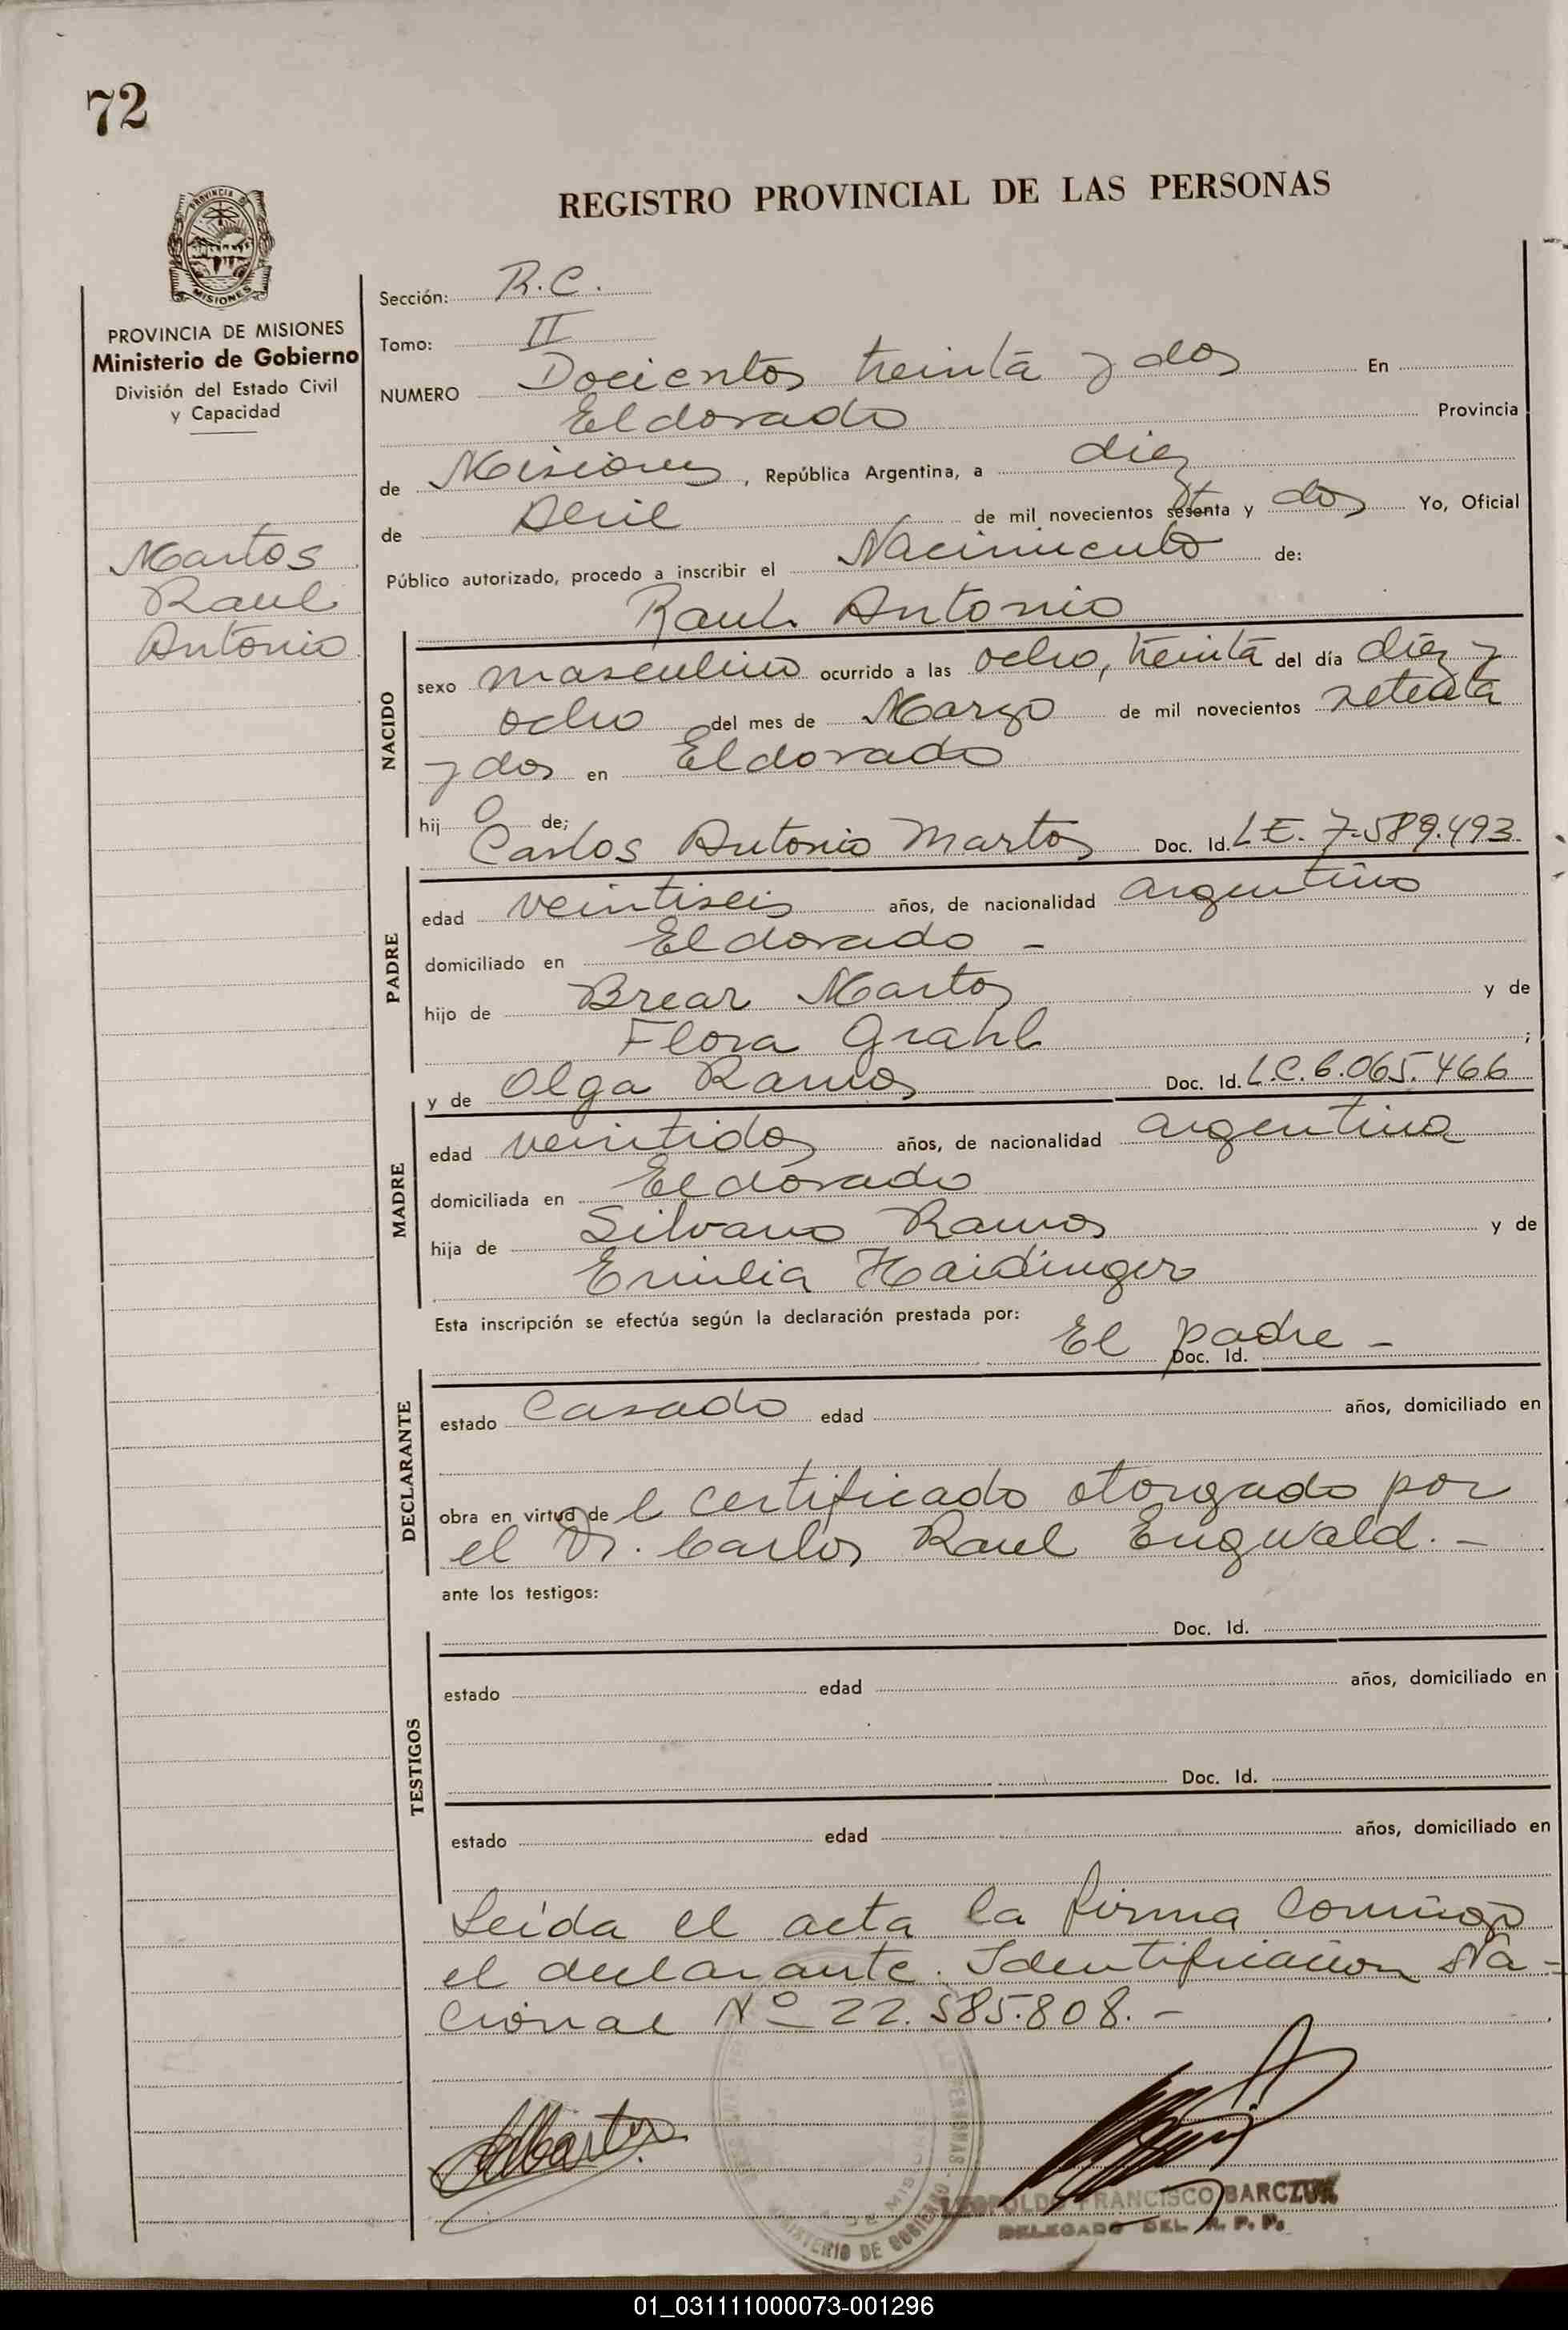 72
REGISTRO PROVINCIAL DE LAS PERSONAS
PROVINCIA
MISIONES
PROVINCIA DE MISIONES
Ministerio de Gobierno
División del Estado Civil
y Capacidad
Martos
Raul
Antonio
Sección: R.C.
Tomo: II
NUMERO Docientos treinta y dos En
Eldorado Provincia
de Misiones, República Argentina, a diez
de Abril de mil novecientos setenta y dos Yo, Oficial
Público autorizado, procedo a inscribir el Nacimiento de:
Raul Antonio
NACIDO
sexo masculino ocurrido a las ocho, treinta del día diez y
ocho del mes de Marzo de mil novecientos setenta
y dos en Eldorado
hij o de;
Carlos Antonio Martos Doc. Id. L.E. 7.589.493.
PADRE
edad veintiseis años, de nacionalidad argentino
domiciliado en Eldorado -
hijo de Brear Martos y de
Flora Grahl ;
y de Olga Ramos Doc. Id. L.C. 6.065.466
MADRE
edad veintidos años, de nacionalidad argentina
domiciliada en Eldorado
hija de Silvano Ramos y de
Emilia Haidinger
Esta inscripción se efectúa según la declaración prestada por:
El padre -
Doc. Id.
DECLARANTE
estado Casado edad años, domiciliado en
obra en virtud de l certificado otorgado por
el Dr. Carlos Raul Engwald. -
ante los testigos:
Doc. Id.
TESTIGOS
estado edad años, domiciliado en
Doc. Id.
estado edad años, domiciliado en
Leída el acta la firma conmigo
el declarante. Identificacion Na-
cional Nº 22.585.808. -
MINISTERIO DE GOBIERNO
LEOPOLDO FRANCISCO BARCZUK
DELEGADO DEL R. P. P.
01_031111000073-001296